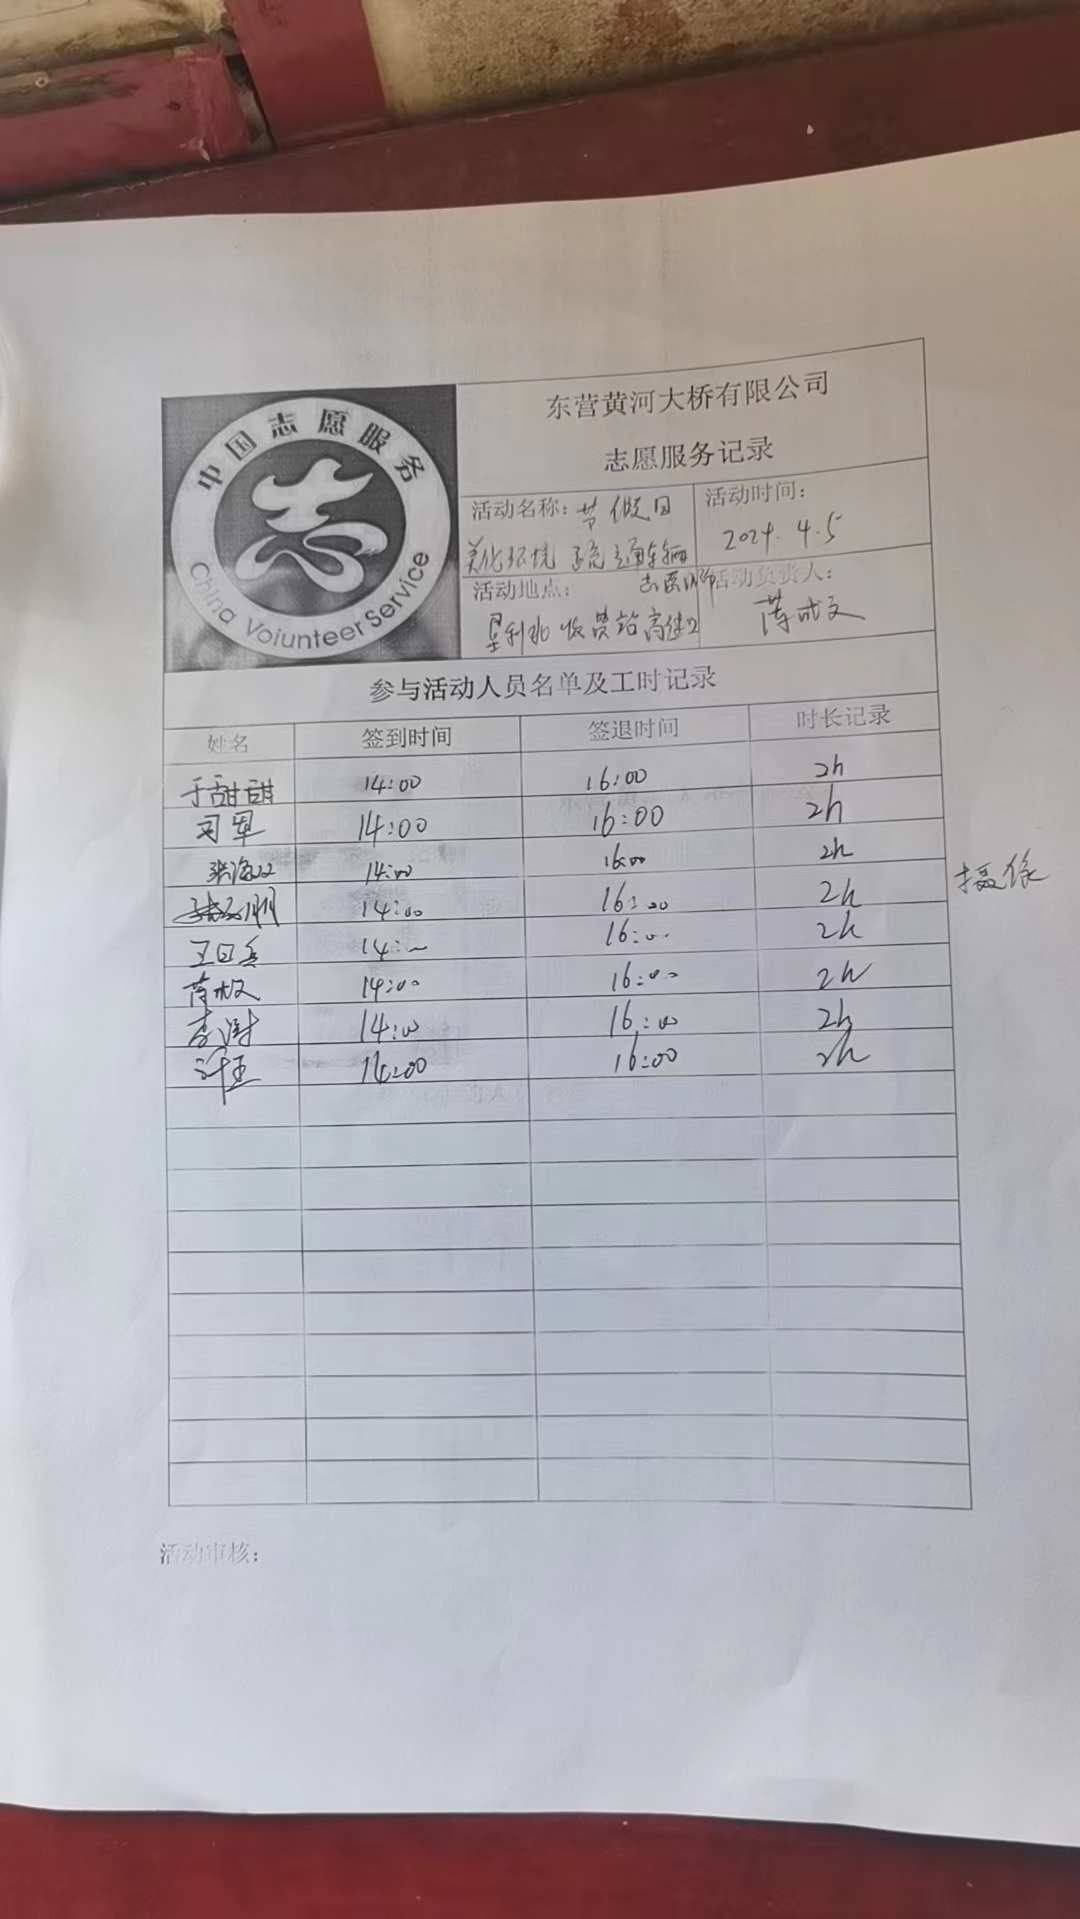 中国志愿服务
China Voiunteer Service
东营黄河大桥有限公司
志愿服务记录
活动名称：节假日
美化环境 疏通车辆
志愿服
活动时间：
2024.4.5
活动地点：
垦利北收费站高速口
活动负责人：
薄成文
参与活动人员名单及工时记录
姓名 签到时间 签退时间 时长记录
于甜甜 14:00 16:00 2h
司军 14:00 16:00 2h
张海 14:00 16:00 2h
14:00 16:00 2h 摄像
王日兵 14:00 16:00 2h
薄成文 14:00 16:00 2h
李 14:00 16:00 2h
14:00 16:00 2h
活动审核：